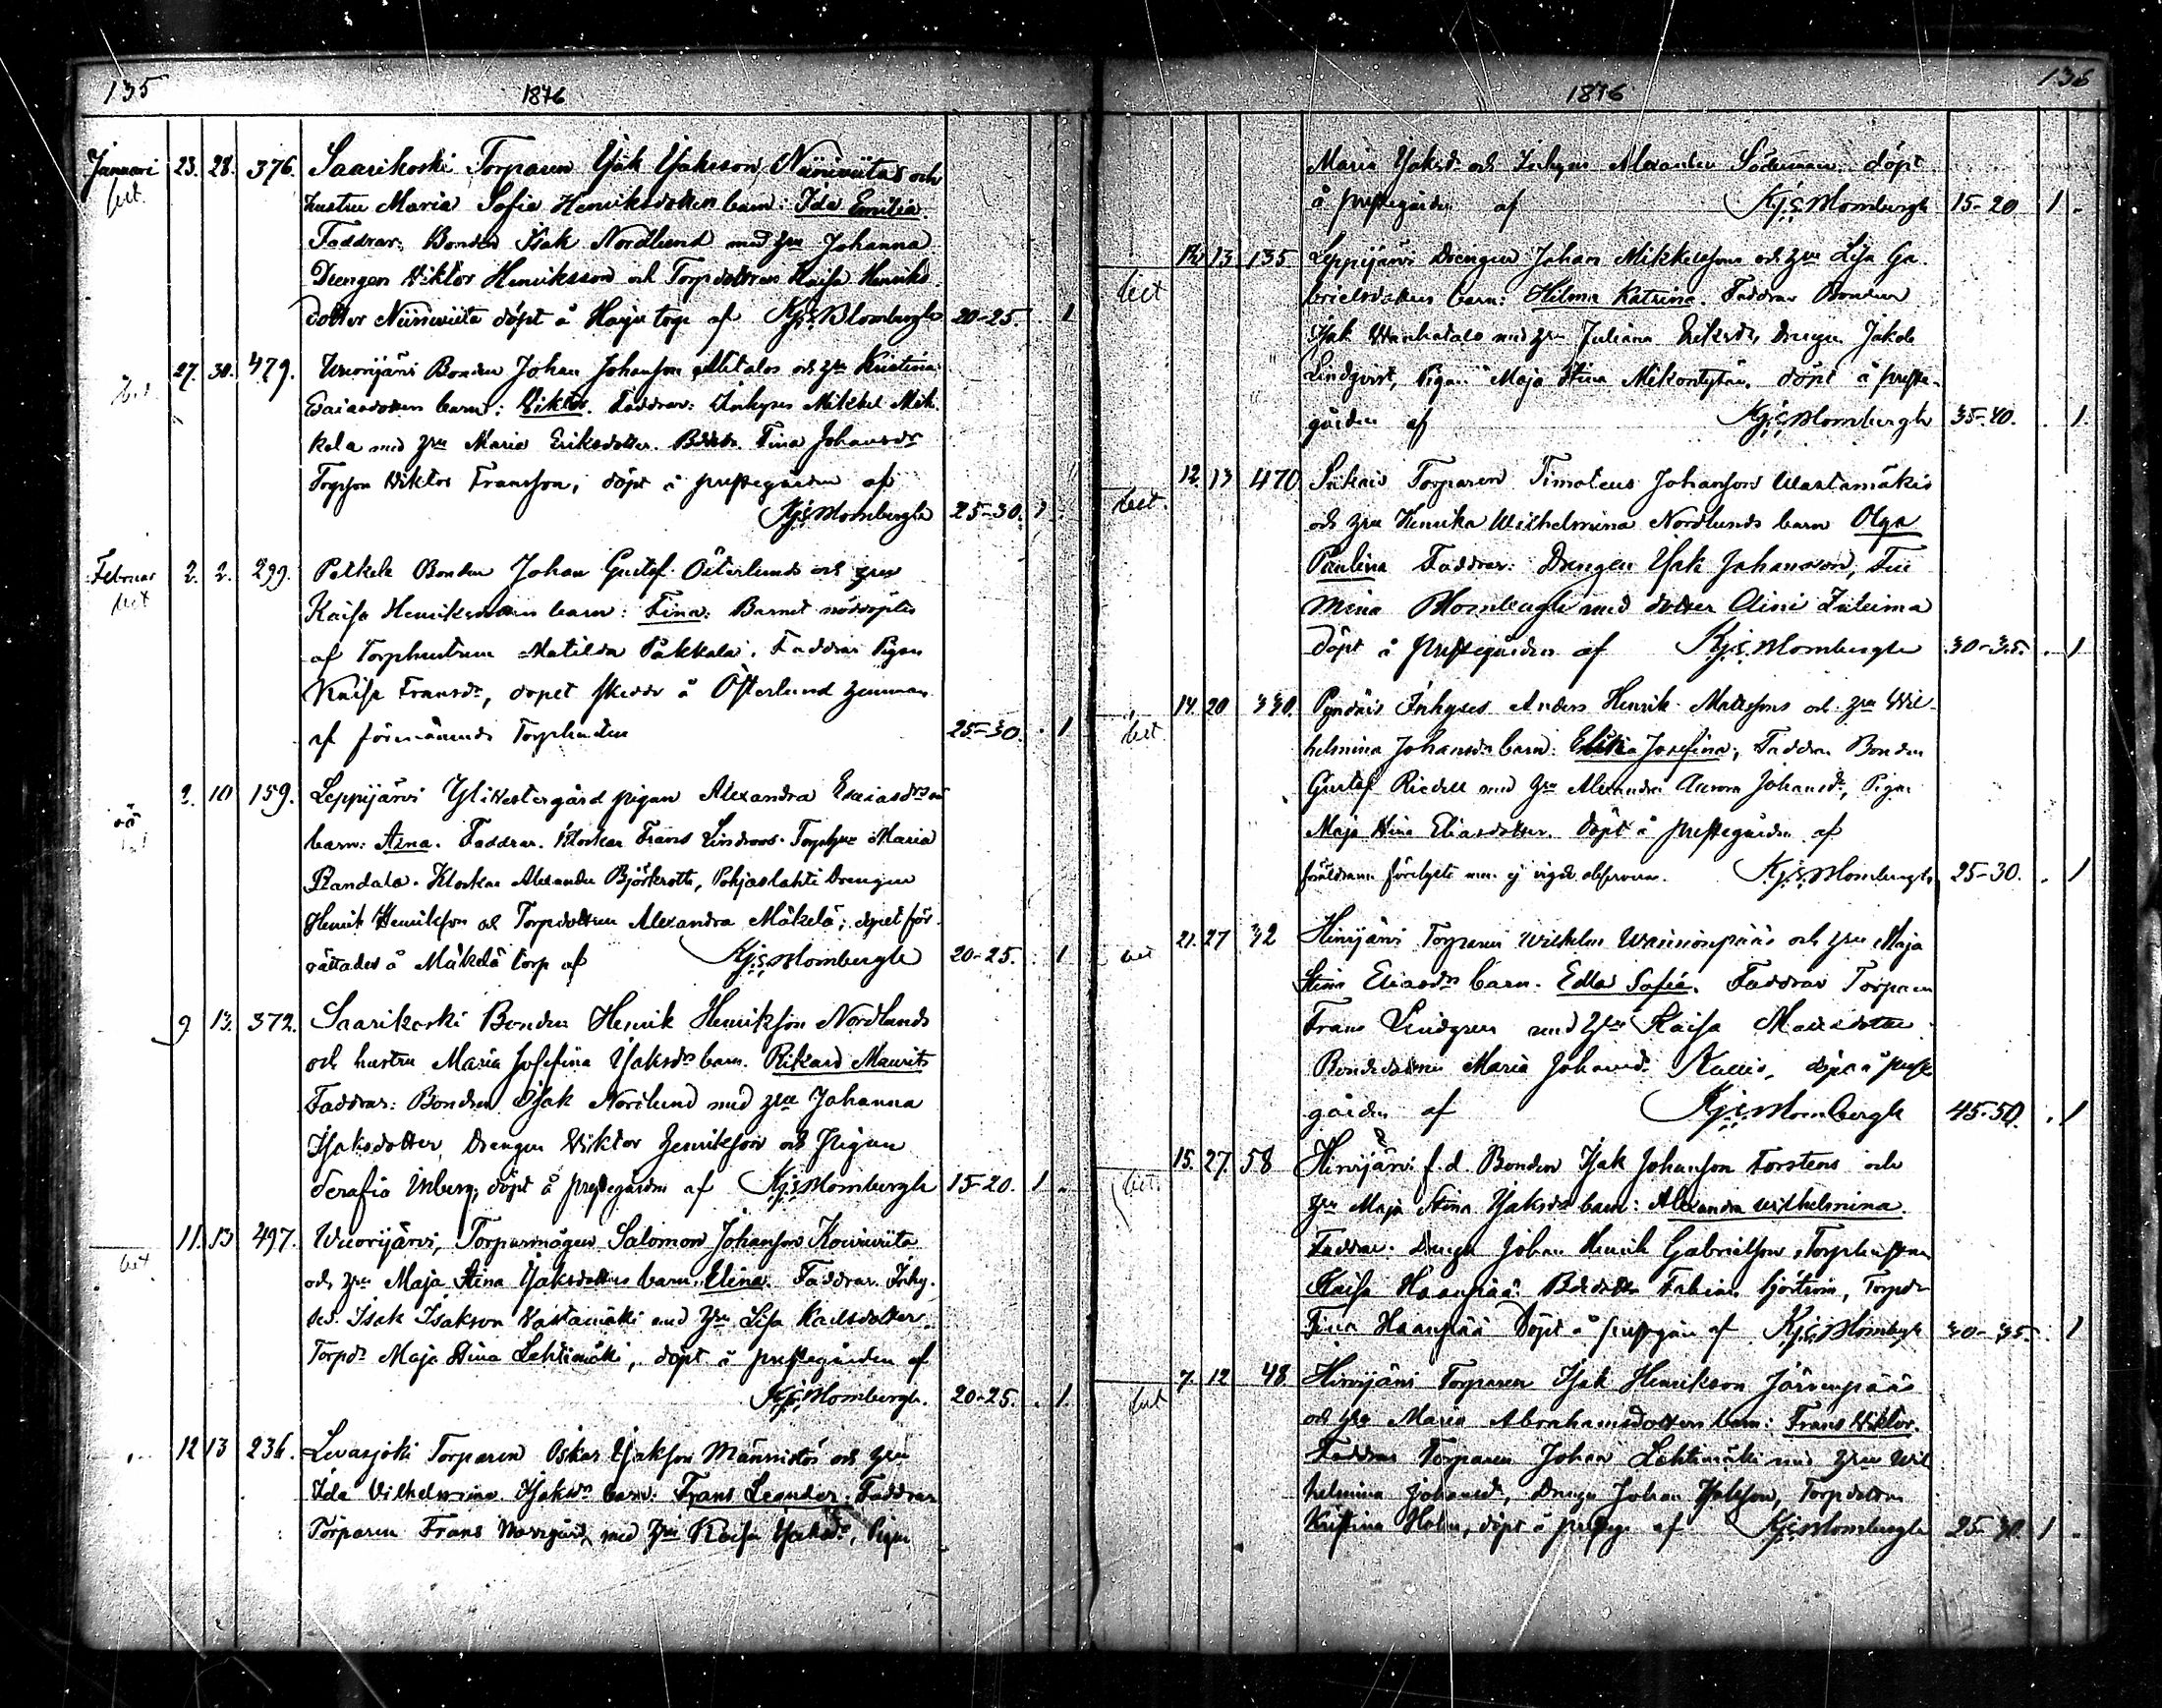 135
1876
Januari 23. 28. 376. Saarikoski Torparen Isak Isaksson Niiniviitas och
bet. hustru Maria Sofia Henriksdotters barn: Ida Emilia.
Faddrar: Bonden Isak Nordlund med hru Johanna
Drengen Viktor Henriksson och Torpdottren Kaisa Henriks
dotter Niiniviita döpt å Harju torp af Kjs Blombergh 20-25. 1
27. 30. 479. Wuorijärvi Bonden Johan Johansson och hru Kristina
bet. Esaiasdotters barn: Viktor. Faddrar: Inhyses Mikkel Mik
kola med hru Maria Eriksdotter. Bdedtr. Fina Johansdr
Torpson Viktor Fransson, döpt å prestegården af
Kjs Blombergh 25-30. 1
Februar 2. 2. 299. Bonden Johan Gustaf Österlunds och hru
bet Kaisa Henriksdotters barn: Fina. Barnet nöddöptes
af Torphustrun Matilda Pakkala. Faddrar Pigan
Kaisa Fransdr, dopet skedde å Österlund hemman
af förenämnde Torphustru 25-30. 1
2. 10 159. Leppijärvi Ylivestergård pigan Alexandra Esaiasdrs
oä barn: Aina. Faddrar. Klockar Frans Lindroos. Torphru Maria
Randala. Klockar Alexander Björkroth, Pohjaslahti Drengen
Henrik Henriksson och Torpdottren Alexandra Mäkelä; dopet för
rättades å Mäkelä torp af Kjs Blombergh 20-25. 1
9 13. 372. Saarikoski Bonden Henrik Henriksson Nordlunds
och hustru Maria Josefina Isaksdrs barn. Rikard Maurits
Faddrar: Bonden Isak Nordlund med hru Johanna
Isaksdotter, Drengen Viktor Henriksson och Pigan
Serafia Inberg, döpt å prestegården af Kjs Blombergh 15-20. 1
11. 13 497. Wuorijärvi, Torparmågen Salomon Johansson Koiviviita
bet och hru Maja Stina Isaksdotters barn. Elina. Faddrar. Inhy-
ses. Isak Isaksson Vastamäki med hru Lisa Karlsdotter.
Torpdr Maja Stina Lehtimäki, döpt å prestegården af
Kjs Blombergh. 20-25. 1.
12 13 236. Levasjoki Torparen Oskar Isaksson Männistös och hru
Ida Vilhelmina Isaksdrs barn: Frans Leander. Faddrar
Torparen Frans med hru Kaisa Isaksdr, Pigan
136
1876
Maria Isaksdr och Inhyses Alexander Söderman döpt
å prestegården af Kjs Blombergh 15-20 1
13 135 Leppijärvi Drengen Johan Mikkelssons och hru Lisa Ga-
bet brielsdotters barn: Hilma Katrina. Faddrar Bonden
Isak Wanhatalo med hru Juliana Eriksdr, Drengen Jakob
Lindqvist, Pigan Maja Stina Mikontytär, döpt å preste-
gården af Kjs Blombergh 35-40. 1.
12. 13 470 Torparen Timoteus Johansson Wastamäkis
bet. och hru Henrika Wilhelmina Nordlunds barn Olga
Paulina Faddrar: Drengen Isak Johansson, Fru
Mina Blombergh med dotter Aini
döpt å prestegården af Kjs Blombergh 30-35. 1
14. 20 Inhyses Anders Henrik Mattssons och hru Wil-
bet helmina Johansdrs barn: Josefina, Faddrar Bonden
Gustaf Riedell med hru Alexandra Aurora Johansdr, Pigan
Maja Stina Eliasdotter. Döpt å prestegården af
föräldrarne ej vigde Kjs Blombergh 25-30. 1
21. 27 32 Hirvijärvi Torparen Wilhelm Wainionpääs och hru Maja
bet Stina Eliasdrs barn. Edla Sofia. Faddrar Torparen
Frans Lindgren med hru Kaisa
Bondedottren Maria Johansdr döpt å preste
gården af Kjs Blombergh 45-50. 1
15. 27. 58 Hirvijärvi f.d. Bonden Isak Johansson Torstens och
bet. hru Maja Stina Isaksdrs barn: Alexandra Wilhelmina.
Faddrar. Drengen Johan Henrik Gabrielsson, Torphustrun
Kaisa Haanpää Torpdr
Fina Haanpää Döpt å prestgån af Kjs Blombergh 1
7. 12 48. Hirvijärvi Torparen Isak Henriksson Järvenpääs
bet och hru Maria Abrahamsdotters barn: Frans Viktor.
Faddrar Torparen Johan Lehtimäki med hru Wil
helmina Johansdr, Drengen Johan Torpdottren
Kristina Holm, döpt å prestgn af Kjs Blombergh 25-30. 1